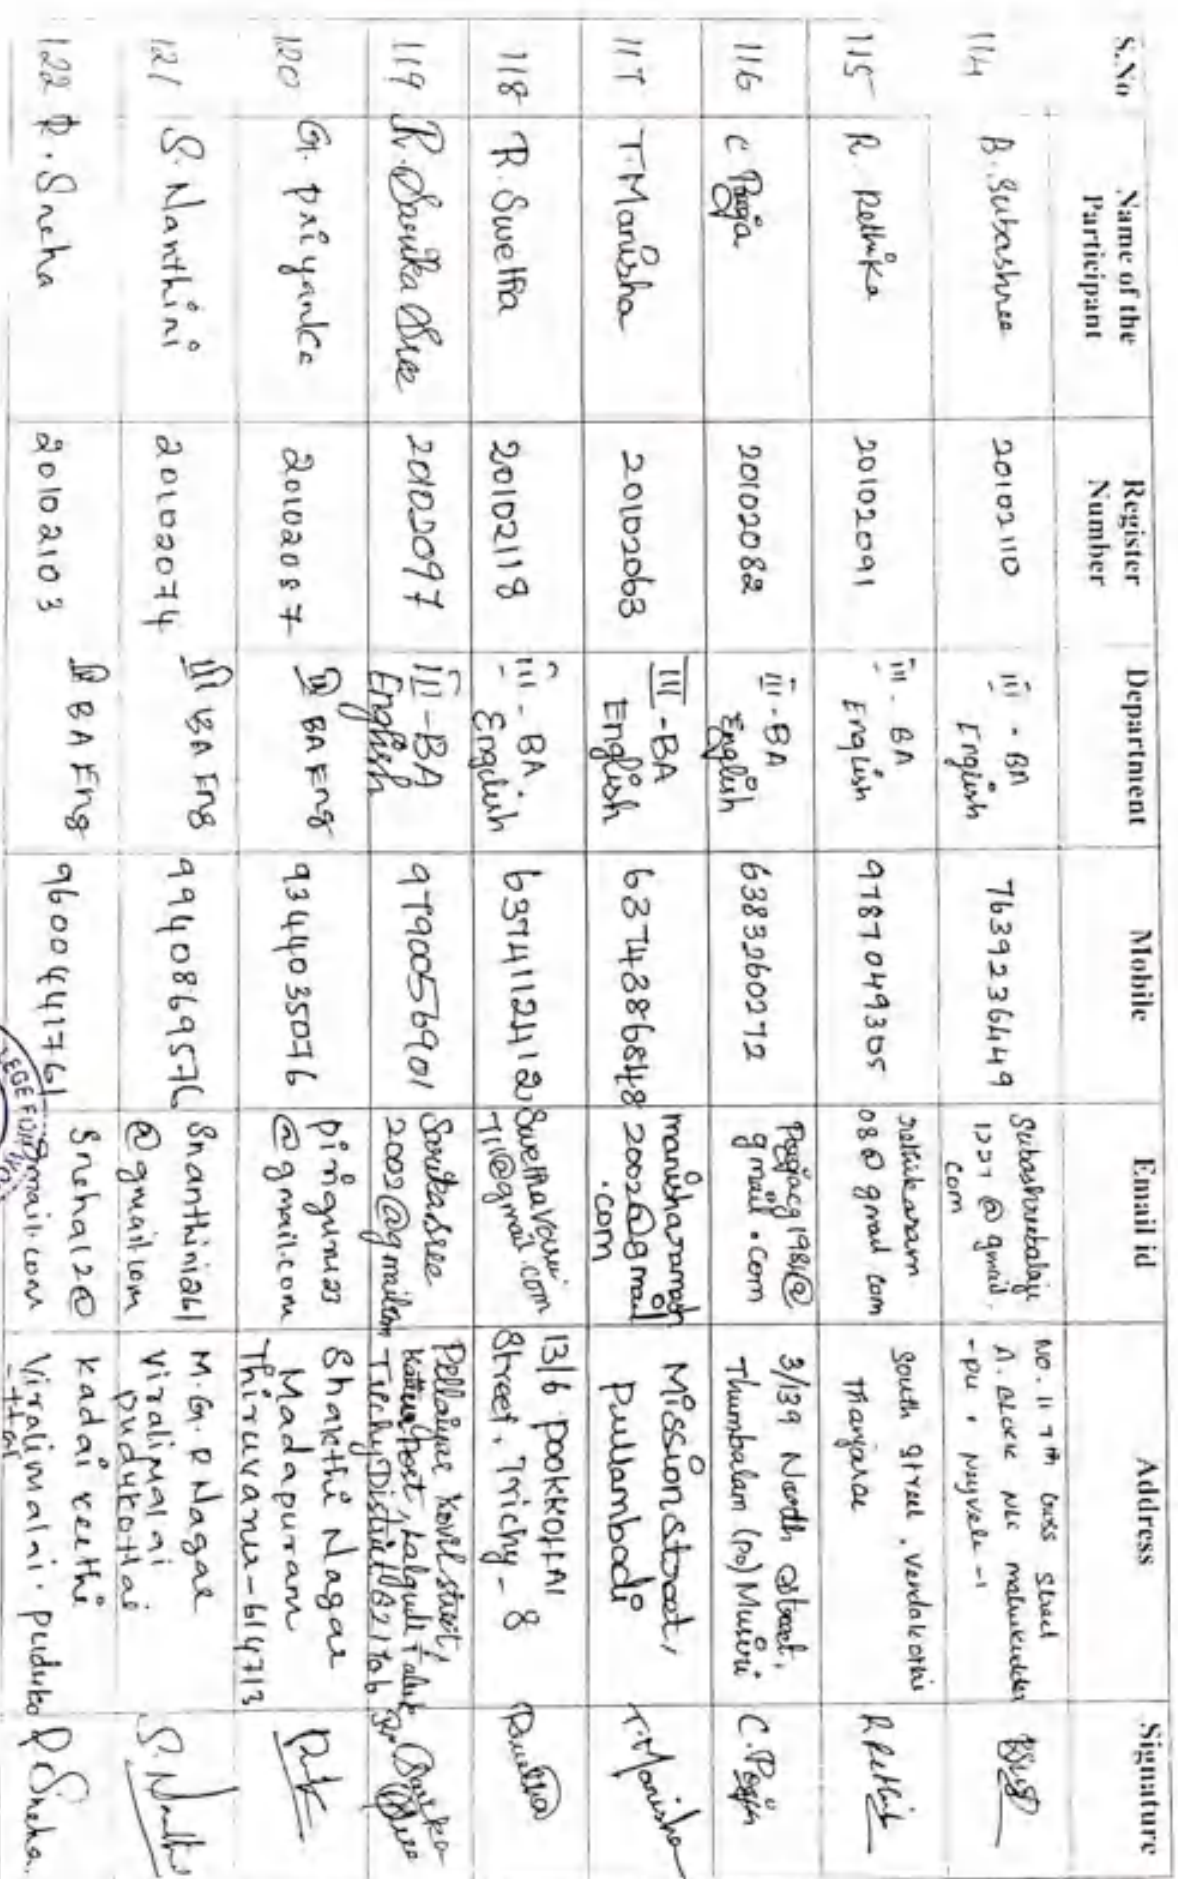 S.No Name of the Participant Register Number Department Mobile Email id Address Signature
114 B. Subashree 20102110 III - BA English 7639236449 Subashreebalaji 1227 @ gmail. com No. 11 7th Cross Street A. Block NLC -1
115 R. Rethika 20102091 III - BA English 9787049305 08@ gmail com South Street, Vendakothi
116 C Pooja 20102082 III - BA English 6383260272 Poojacg1981@ gmail.com 3/139 North Street, Thumbalam (po) Musiri C. Pooja
117 T. Manisha 20102063 III - BA English 6374386848 manisharamesh 2002@gmail .com Mission Street, Pullambadi T. Manisha
118 R. Swetha 20102118 III - BA English 6374112412 711@gmail.com 13/6 POOKKOLLAI Street, Trichy - 8
119 R. Sarika Sree 20102097 III - BA English 9790056901 Sarikasree 2002@gmail.com Pellaiyar Kovil street, post, Lalgudi taluk Trichy District 621
120 G. Priyanka 20102087 III BA Eng 9344035076 @gmail.com Shakthi Nagar Madapuram Thiruvanur-614713
121 S. Nanthini 20102074 III BA Eng 9940869576 Snanthini261 @gmail.com M.G.R Nagar Viralimalai pudukottai
122 R. Sneha 20102103 III BA Eng 9600441761 Sneha12@ gmail.com kadai veethi Viralimalai. puduko -ttai R. Sneha.